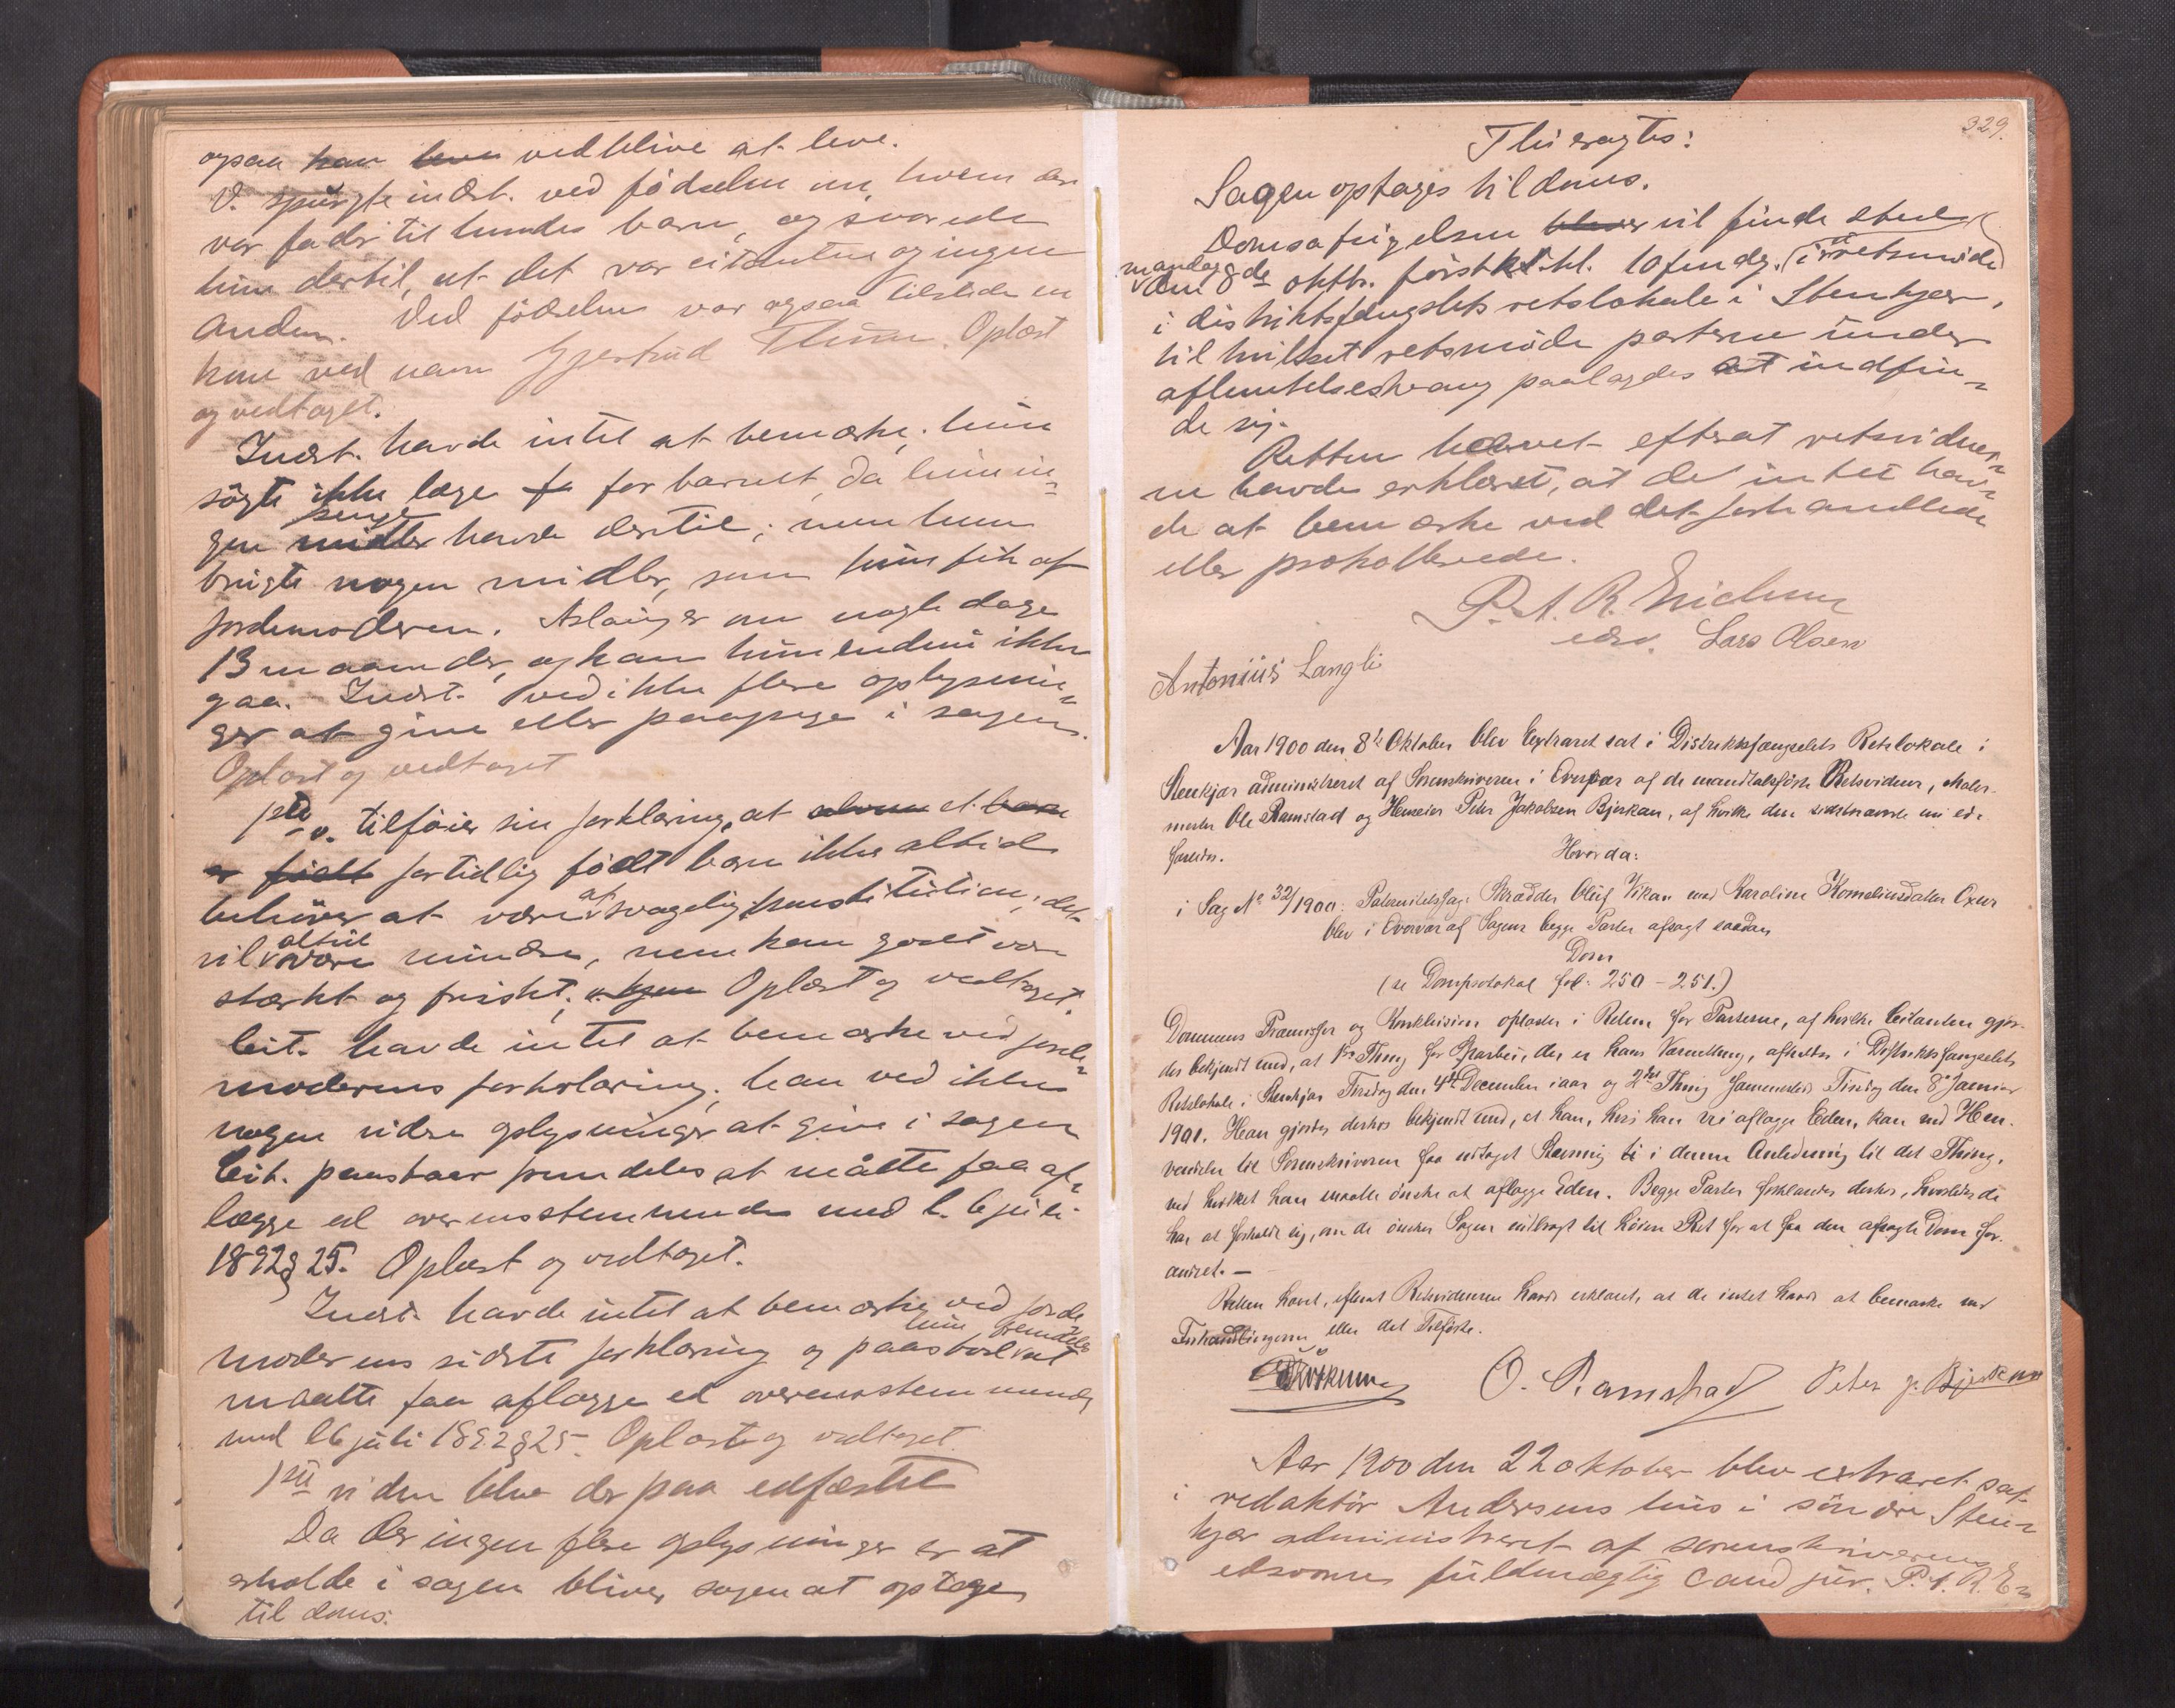 ogsaa kan leve vedblive at leve.
V. spurgte indst. ved fødselen om, hvem der
var fader til hendes barn, og svarede
hun dertil, at det var citanten og ingen
anden. Ved fødselen var ogsaa tilstede en
kone ved navn Gjertrud Oplæst
og vedtaget.
Indst. havde intet at bemærke; hun
søgte ikke læge fo for barnet, da hun in-
gen midler penge havde dertil; men hun
brugte nogen midler, som hun fik af
jordemoderen. Aslaug er om nogle dage
13 maaneder, og kan hun endnu ikke
gaa. Indst. ved ikke flere oplysnin-
ger at give eller paapege i sagen.
Oplæst og vedtaget
1ste v. tilføier sin forklaring, at et barn
er født fortidlig født barn ikke altid
behøver at være af svagelig konstitution; det
vil altid være mindre, men kan godt være
stærkt og friskt; Oplæst og vedtaget.
Cit. havde intet at bemærke ved jorde-
moderens forklaring; han ved ikke
nogen videre oplysninger at give i sagen
Cit. paastaar fremdeles at måtte faa af-
lægge ed overensstemmende med l. 6 juli
1892 § 25. Oplæst og vedtaget.
Indst. havde intet at bemærke ved jorde
moderens sidste forklaring og paastod hun fremdeles at
maatte faa aflægge ed overensstemmende
med l 6 juli 1892 § 25. Oplæst og vedtaget.
1ste vidne blev derpaa edfæstet
Da der ingen flere oplysninger er at
erholde i sagen bliver sagen at optage
til doms.
329.
Thi eragtes:
Sagen optages til doms.
Domsafsigelsen bliver vil finde sted
mandag den 8de oktbr. førstk. kl. 10 fmdg. i retsmøde
i distriktsfængslets retslokale i Stenkjær,
til hvilket retsmøde parterne under
afhentelsestvang paalagdes at indfin-
de sig.
Retten hævet efterat retsvidner-
ne havde erklæret, at de intet hav-
de at bemærke ved det forhandlede
eller protokollerede.
P. A. R. Erichsen
edsv. Lars Olsen
Antonius Langli
Aar 1900 den 8de Oktober blev Extraret sat i Distriktsfængselets Retslokale i
Stenkjær administreret af Sorenskriveren i Overvær af de mandtalsførte Retsvidner, Maler-
mester Ole Ramstad og Huseier Peter Jakobsen Bjerkan, af hvilke den sidstnævnte nu ed-
fæstedes.
Hvorda:
i Sag No 32/1900: Paternitetssag: Skrædder Oluf Vikan mod Karoline Korneliusdatter Oxur
blev i Overvær af Sagens begge Parter afsagt saadan
Dom
(se Domprotokol fol: 250 - 251.)
Dommens Præmisser og Konklusion oplæstes i Retten for Parterne, af hvilke Citanten gjor-
des bekjendt med, at 1ste Thing for Sparbu, der er hans Varnething, afholdes i Distriktsfængselets
Retslokale i Stenkjær Tirsdag den 4de December iaar og 2det Thing sammesteds Tirsdag den 8de Januar
1901. Han gjordes derhos bekjendt med, at han, hvis han vil aflægge Eden, kan ved Hen-
vendelse til Sorenskriveren faa udtaget Stevning ti i denne Anledning til det Thing,
ved hvilket han maatte ønske at aflægge Eden. Begge Parter forklaredes derhos, hvorledes de
har at forholde sig, om de ønsker Sagen indbragt til høiere Ret for at faa den afsagte Dom for-
andret. —
Retten hævet, efterat Retsvidnerne havde erklæret, at de intet havde at bemærke ved
Forhandlingerne eller det Tilførte.
O. Ramstad Peter J. Bjerkan
Aar 1900 den 22 oktober blev extraret sat
i redaktør Andersens hus i søndre Sten-
kjær administreret af sorenskriverens
edsvorne fuldmægtig cand jur. P. A. R. E-